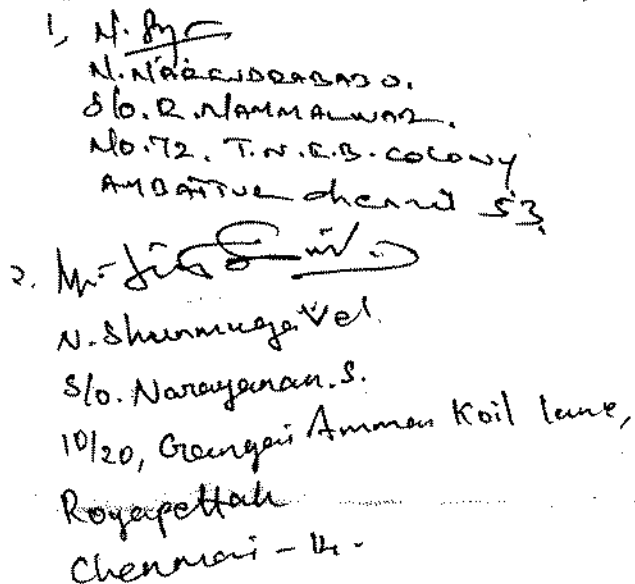 1, N.
N. NARENDRABABU.
S/o. R. NAMMALWAR.
No. 72. T.N.E.B. COLONY
AMBATTUR Chennai 53,
2.
N. Shunmuga Vel.
S/o. Narayanan. S.
10/20, Gangai Amman Koil lane,
Royapettah
Chennai - 14.